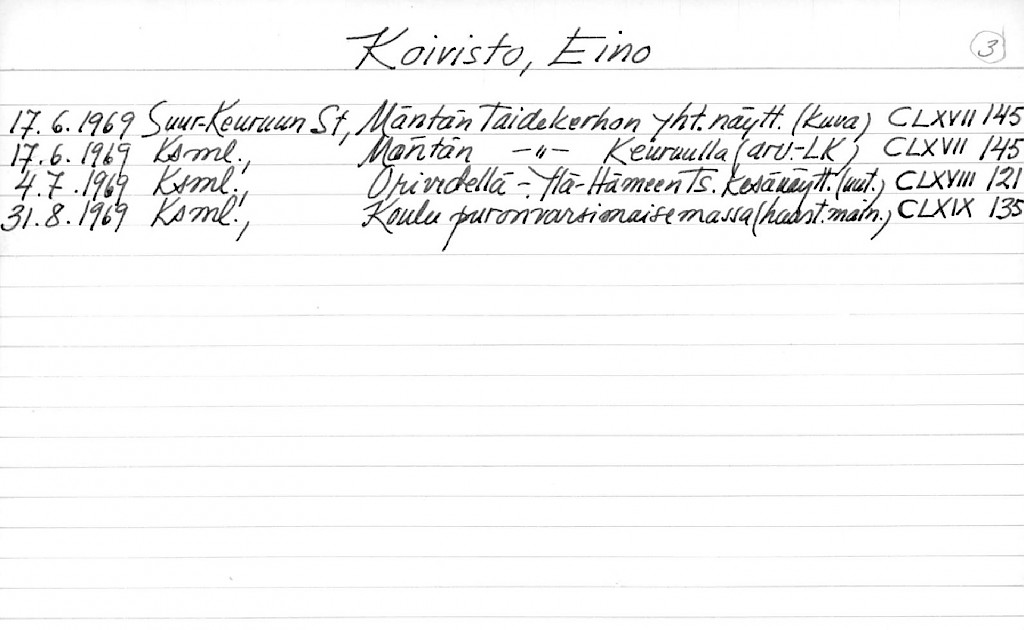 Koivisto, Eino
3
17.6.1969 Suur-Keuruun St, Mäntän Taidekerhon yht.näytt. (kuva) CLXVII 145
17.6.1969 Ksml., Mäntän -"- Keuruulla (arv.-LK) CLXVII 145
4.7.1969 Ksml., Orivedellä - Ylä-Hämeen Ts. kesänäytt. (uut.) CLXVIII 121
31.8.1969 Ksml., Koulu puronvarsimaisemassa (haast.main.) CLXIX 135